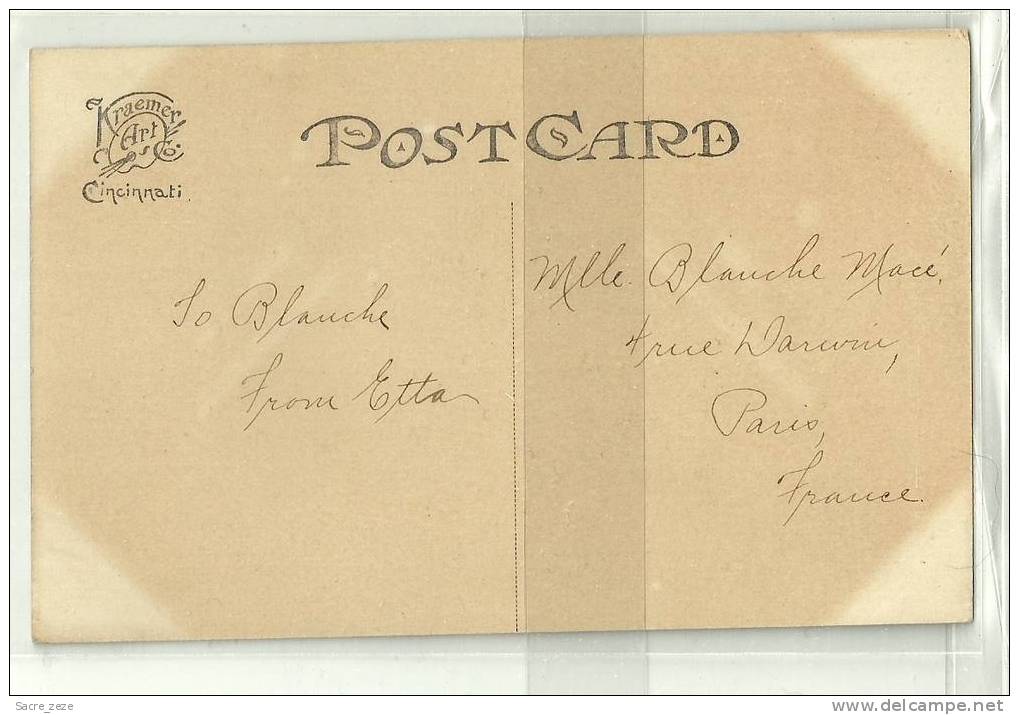 Kraemer
Art
& Co.
Cincinnati.
POST CARD
To Blanche
From Etta
Mlle. Blanche Macé,
4 rue Darwin,
Paris,
France.
Sacre_zeze
www.delcampe.net